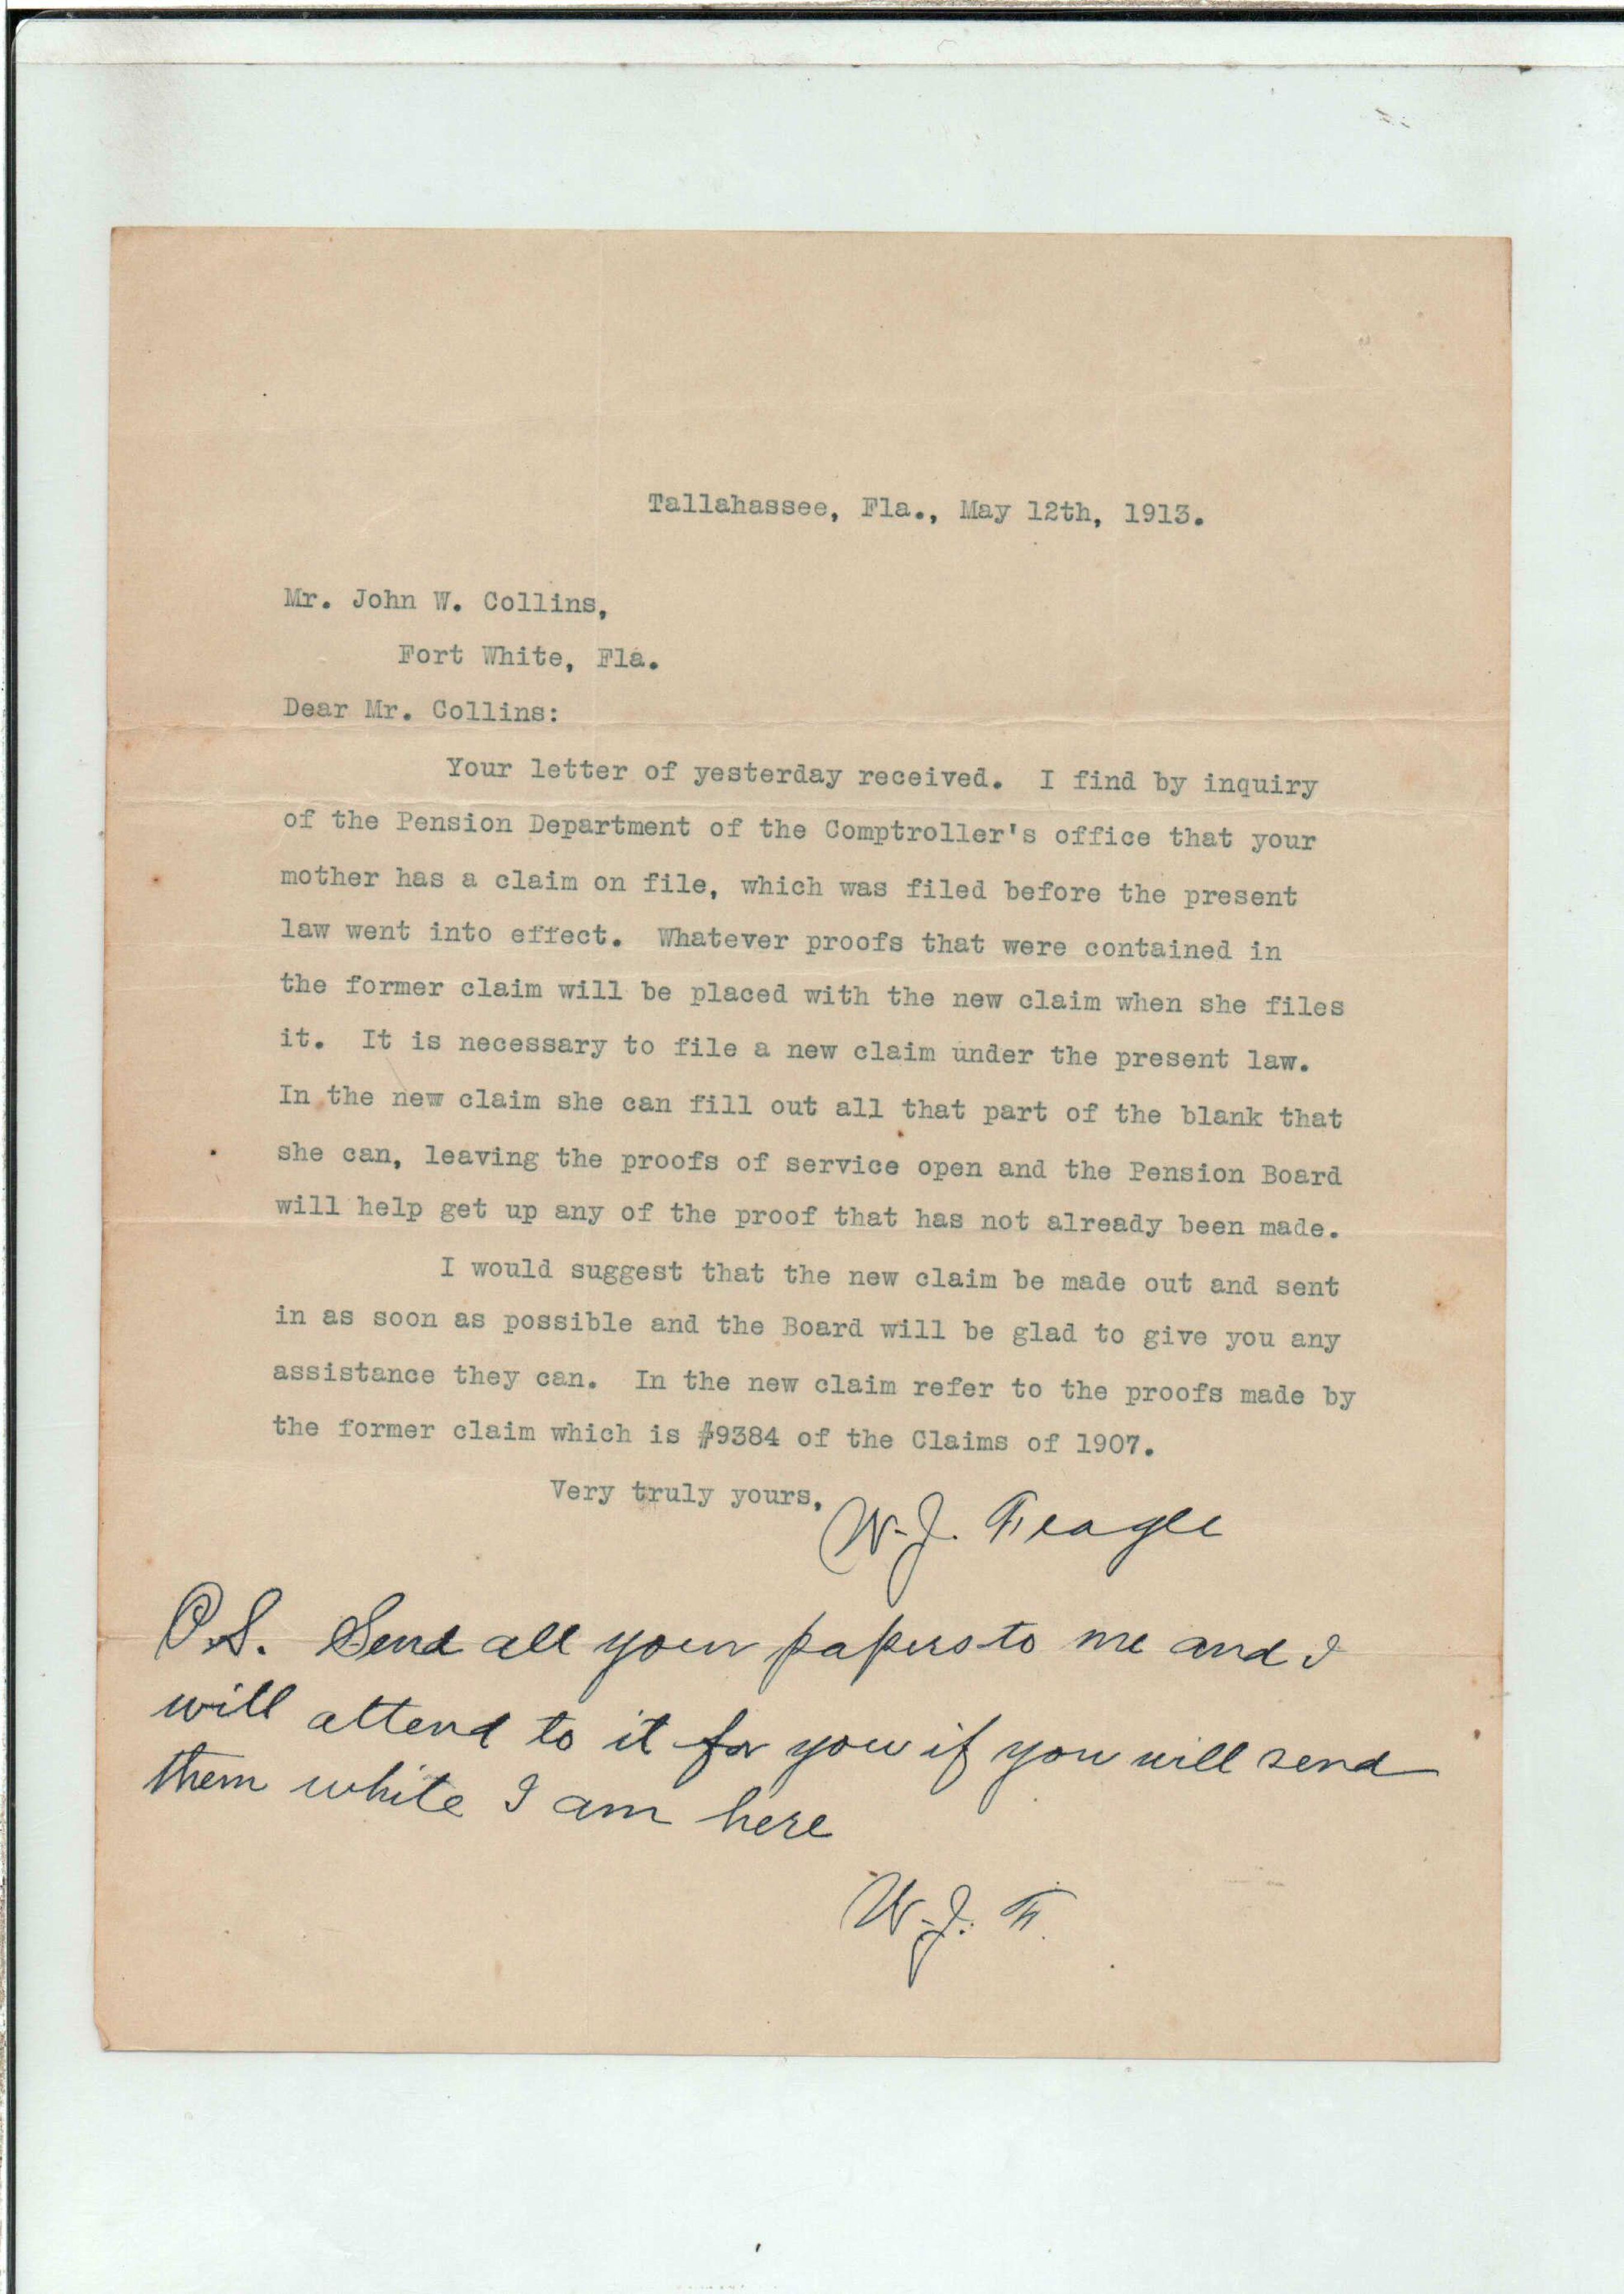 Tallahassee, Fla., May 12th, 1913.
Mr. John W. Collins,
Fort White, Fla.
Dear Mr. Collins:
Your letter of yesterday received. I find by inquiry
of the Pension Department of the Comptroller's office that your
mother has a claim on file, which was filed before the present
law went into effect. Whatever proofs that were contained in
the former claim will be placed with the new claim when she files
it. It is necessary to file a new claim under the present law.
In the new claim she can fill out all that part of the blank that
she can, leaving the proofs of service open and the Pension Board
will help get up any of the proof that has not already been made.
I would suggest that the new claim be made out and sent
in as soon as possible and the Board will be glad to give you any
assistance they can. In the new claim refer to the proofs made by
the former claim which is #9384 of the Claims of 1907.
Very truly yours,
W. J. Feagle
P.S. Send all your papers to me and I
will attend to it for you if you will send
them while I am here
W. J. F.